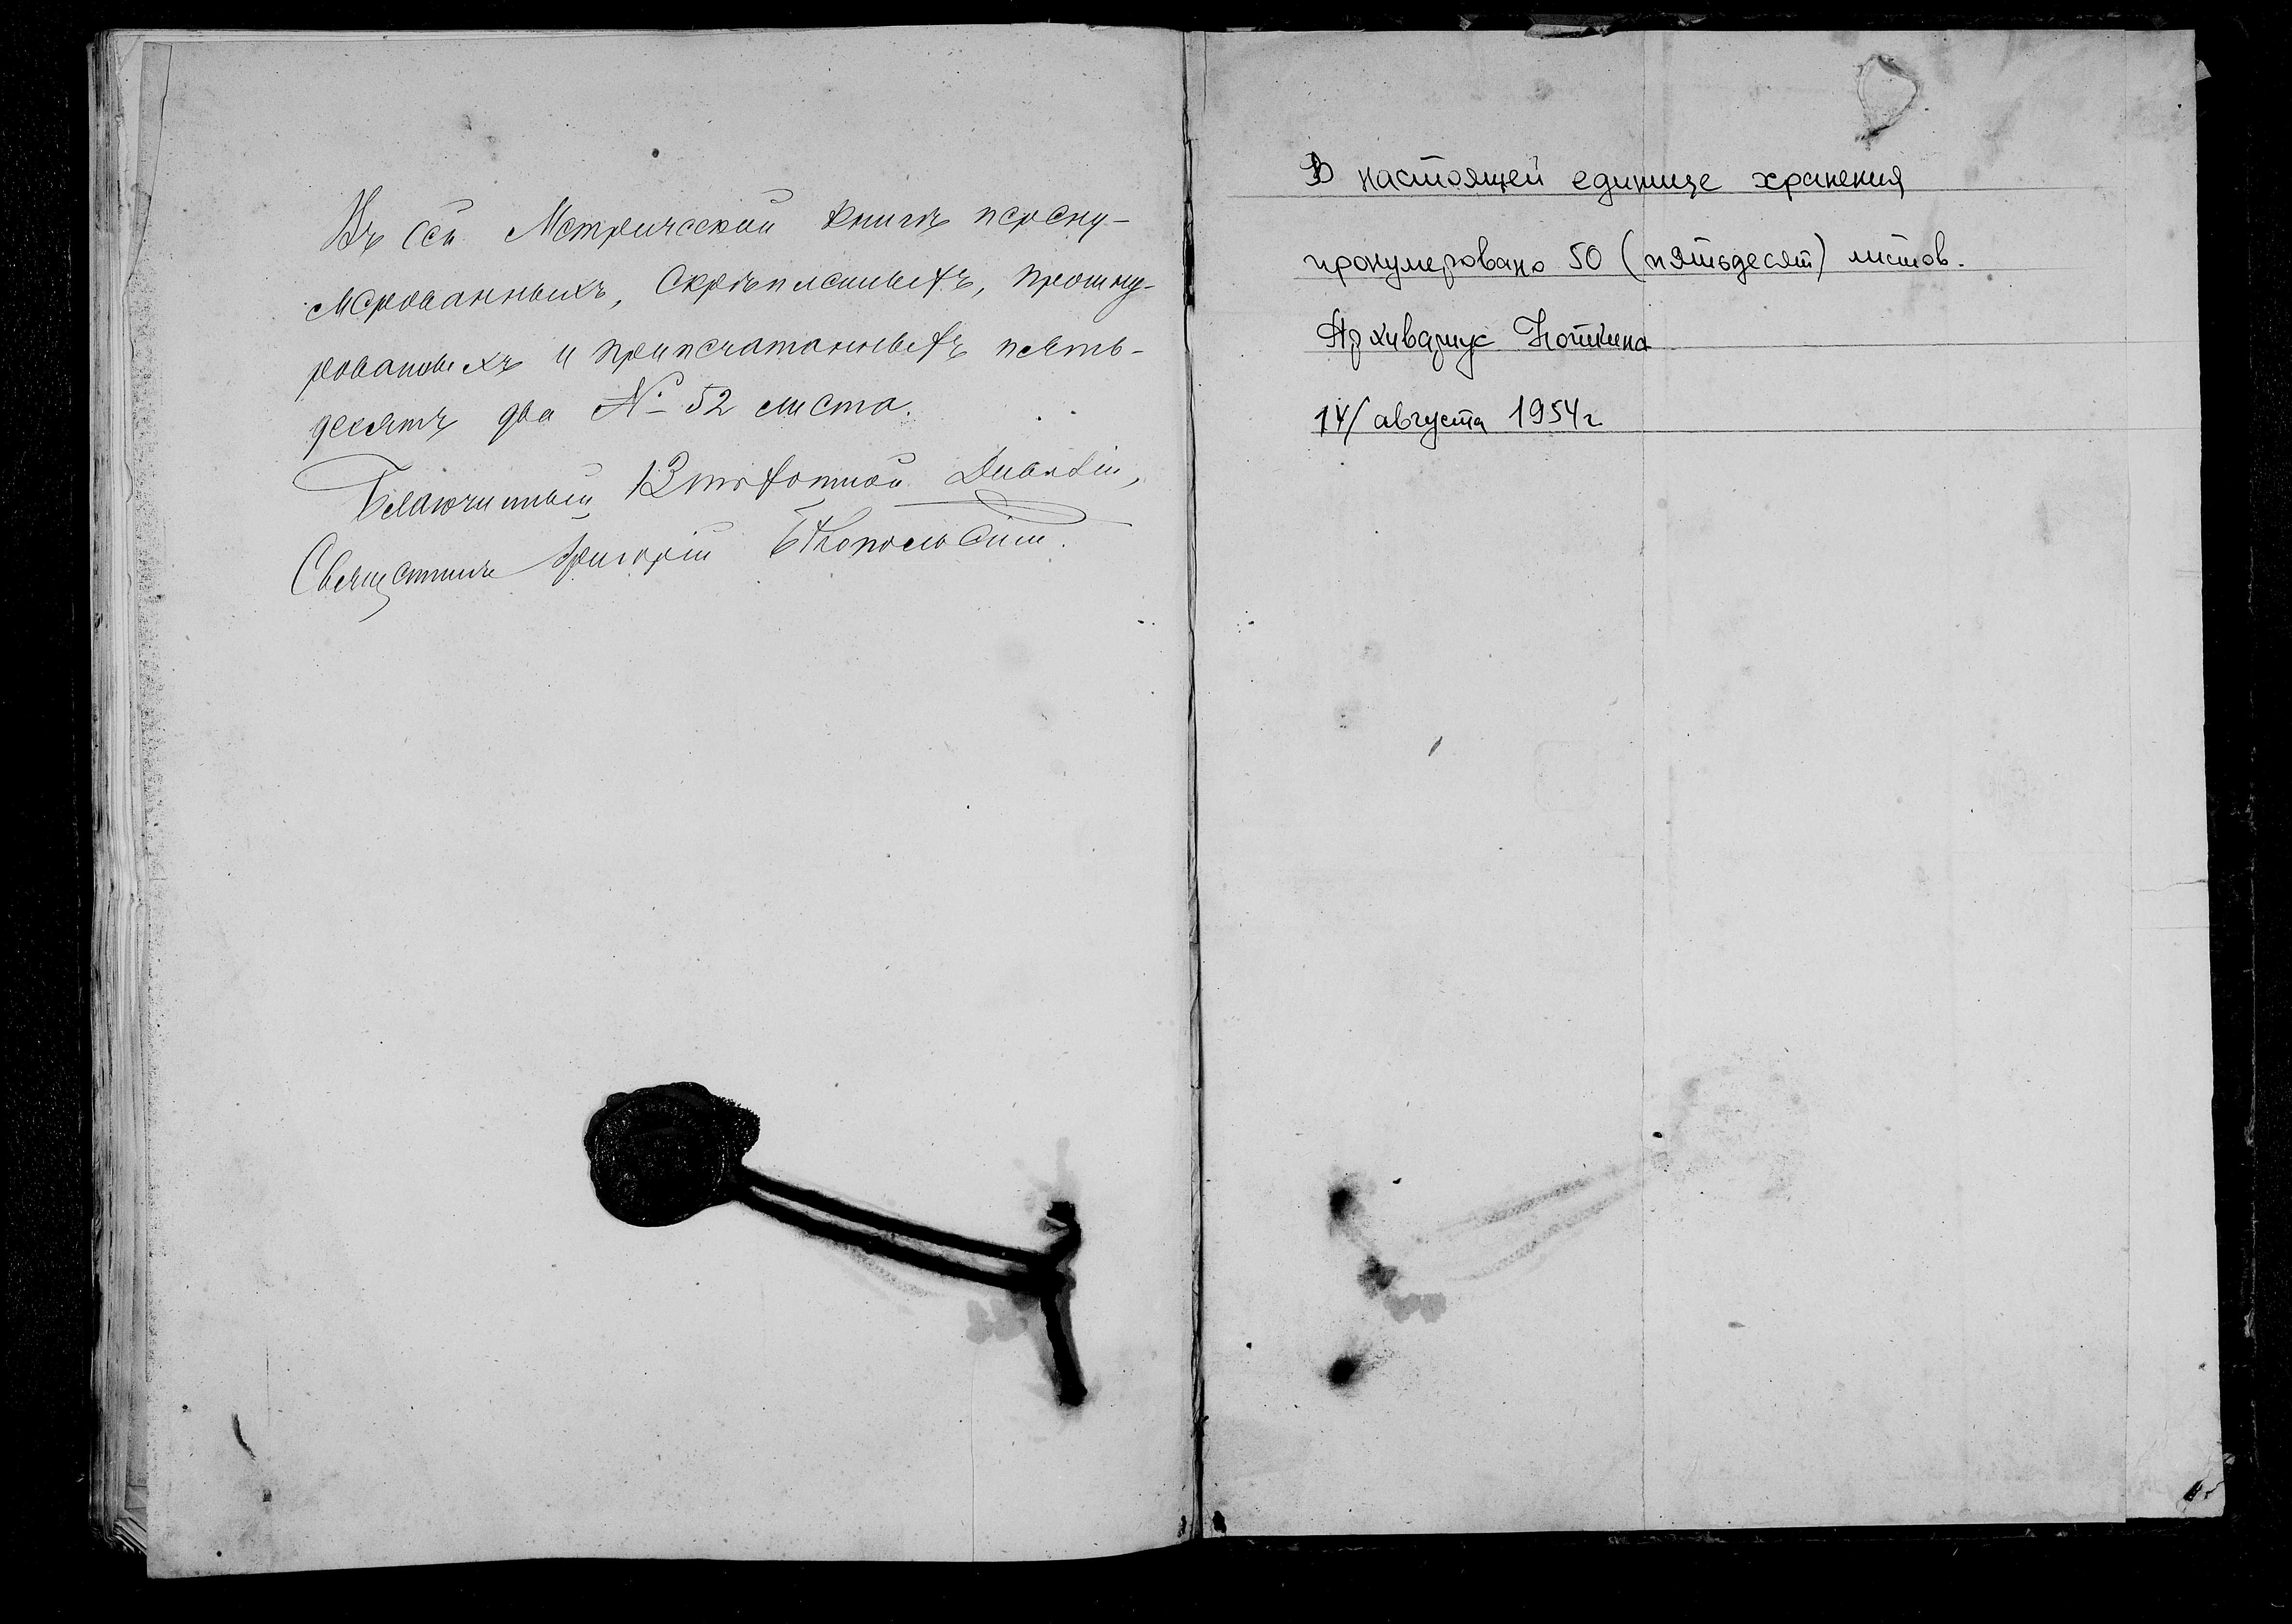 Въ сей Метрической книгѣ перену-
мерованныхъ, Скрѣпленныхъ, прошну-
рованныхъ и припечатанныхъ пять-
десятъ два № 52 листа.
Благочинный
Священникъ Григорій
В настоящей единице хранения
пронумеровано 50 (пятьдесят) листов.
Архивариус
14/ августа 1954г